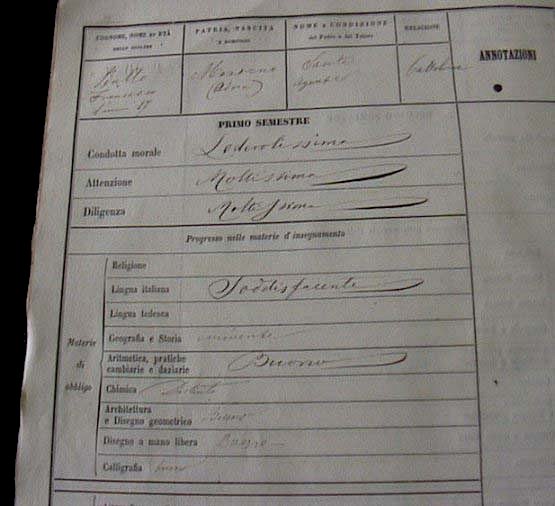 COGNOME, NOME ED ETÀ
DELLO SCOLARE
PATRIA, NASCITA
E DOMICILIO
NOME e CONDIZIONE
del Padre o del Tutore
RELIGIONE
ANNOTAZIONI
Francesco
anni 17
(Adria)
Sante
Agente
Cattolica
PRIMO SEMESTRE
Condotta morale Lodevolissima
Attenzione Moltissima
Diligenza Moltissima
Progresso nelle materie d'insegnamento
Materie
di
obbligo
Religione
Lingua italiana Soddisfacente
Lingua tedesca
Geografia e Storia eminente
Aritmetica, pratiche
cambiarie e daziarie Buono
Chimica
Architettura
e Disegno geometrico Buono
Disegno a mano libera Buono
Calligrafia buono